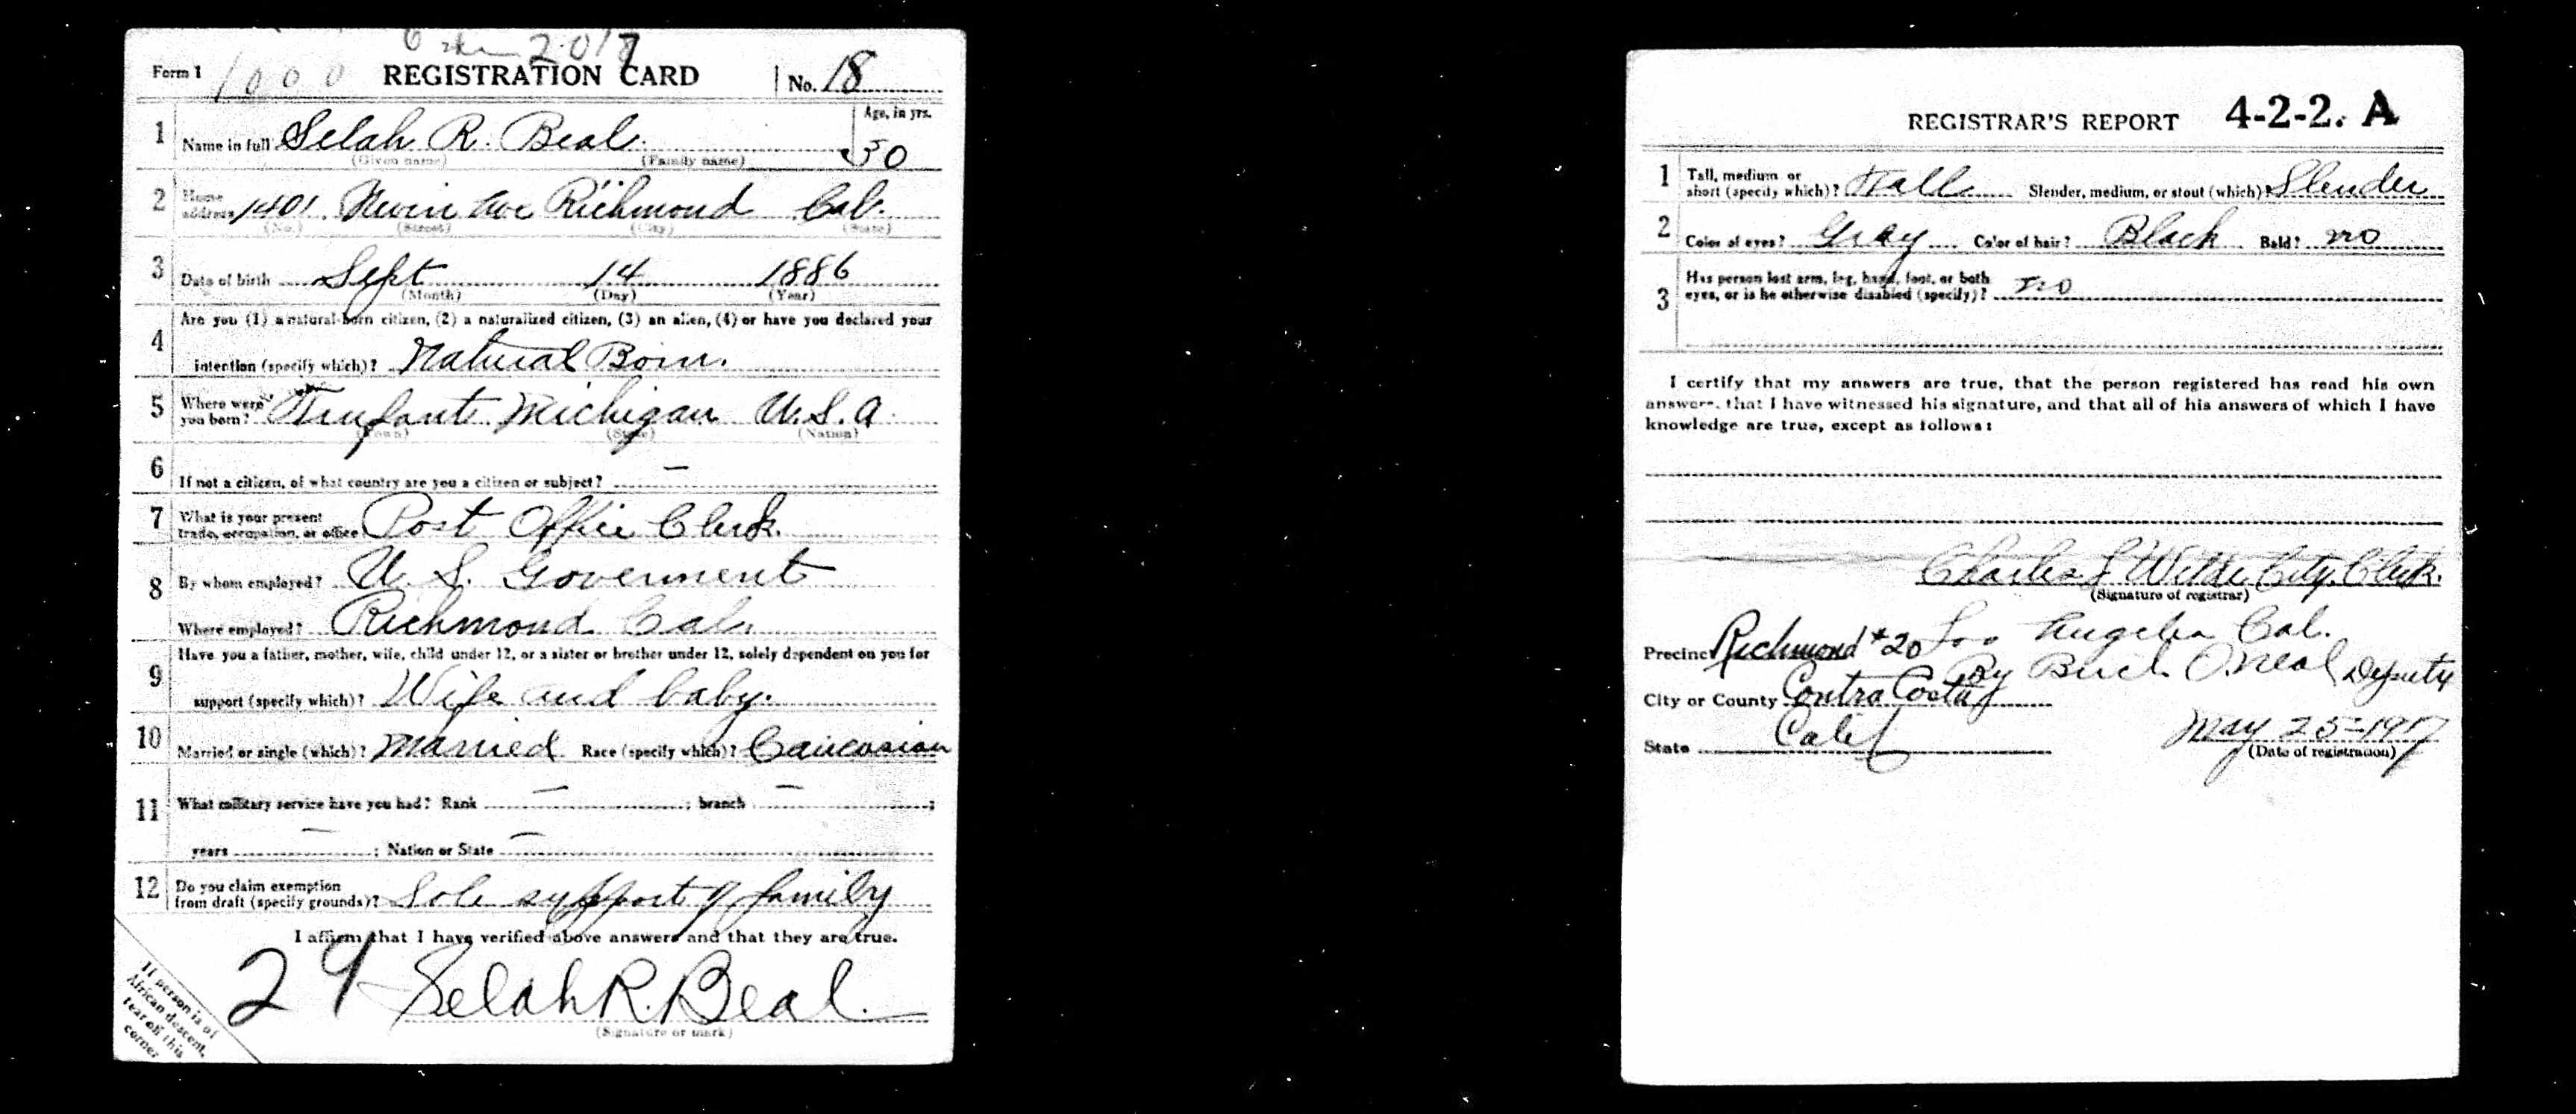 2017
Form 1 1000 REGISTRATION CARD No. 18
1 Name in full Selah R. Beal Age, in yrs. 30
(Given name) (Family name)
2 Home address 1401 Nevin Ave Richmond Cal.
(No.) (Street) (City) (State)
3 Date of birth Sept 14 1886
(Month) (Day) (Year)
Are you (1) a natural-born citizen, (2) a naturalized citizen, (3) an alien, (4) or have you declared your
4 intention (specify which)? Natural Born.
5 Where were you born? Trufant Michigan U.S.A
(Town) (State) (Nation)
6 If not a citizen, of what country are you a citizen or subject? —
7 What is your present trade, occupation, or office Post Office Clerk.
8 By whom employed? U. S. Goverment
Where employed? Richmond Cal.
Have you a father, mother, wife, child under 12, or a sister or brother under 12, solely dependent on you for
9 support (specify which)? Wife and baby.
10 Married or single (which)? Married Race (specify which)? Caucasian
11 What military service have you had? Rank — ; branch — ;
years — ; Nation or State —
12 Do you claim exemption from draft (specify grounds)? Sole support of family
I affirm that I have verified above answers and that they are true.
29 Selah R. Beal.
(Signature or mark)
If person is of
African descent,
tear off this
corner
REGISTRAR'S REPORT 4-2-2. A
1 Tall, medium or short (specify which)? Tall Slender, medium, or stout (which)? Slender
2 Color of eyes? Gray Color of hair? Black Bald? no
3 Has person lost arm, leg, hand, foot, or both
eyes, or is he otherwise disabled (specify)? no
I certify that my answers are true, that the person registered has read his own
answers, that I have witnessed his signature, and that all of his answers of which I have
knowledge are true, except as follows:
Charles L Wilde City Clerk.
(Signature of registrar)
Los Angeles Cal.
Precinct Richmond #20
By Burch O.Neal Deputy
City or County Contra Costa
State Calif May 25-1917
(Date of registration)